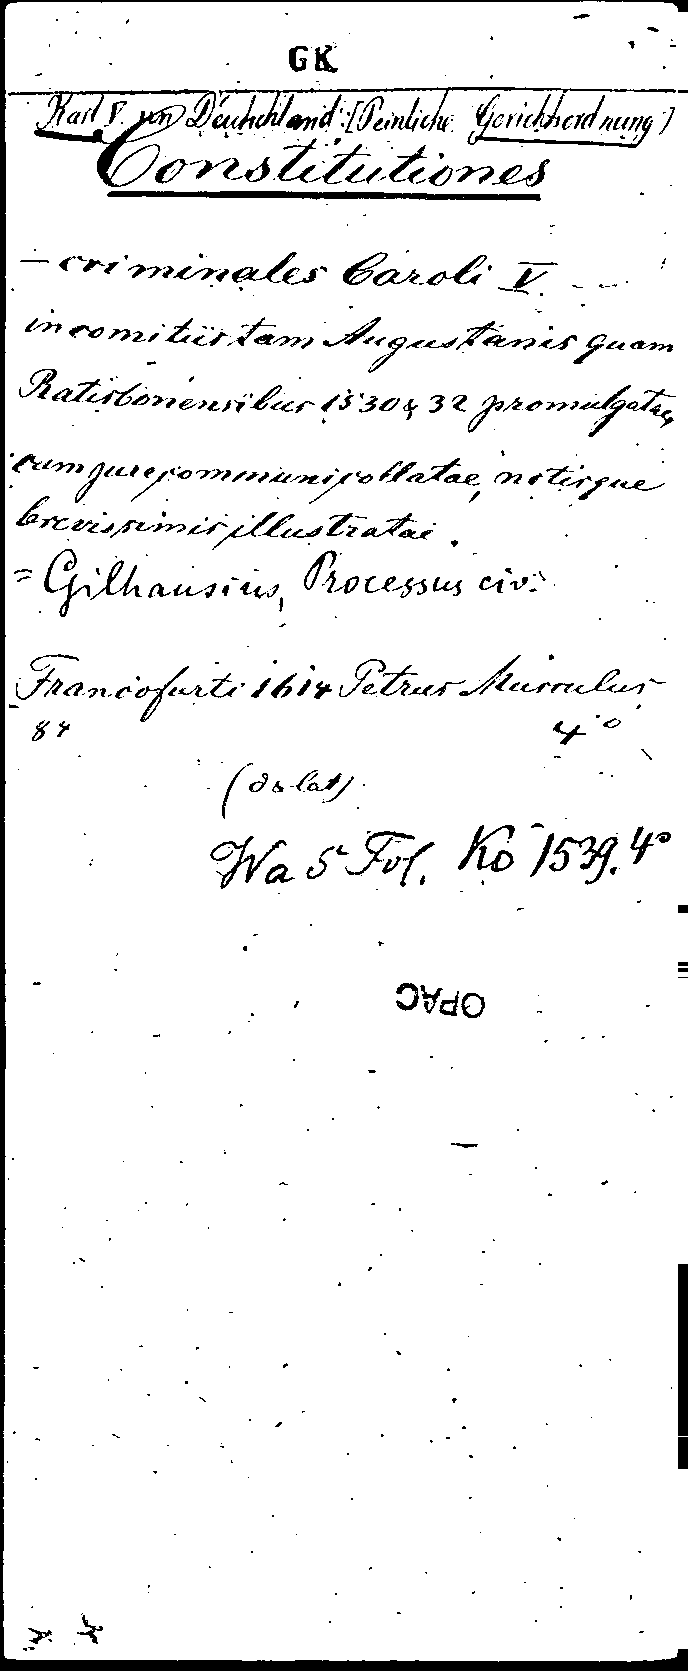 GK
Karl V. von Deutschland: [Peinliche Gerichtsordnung]
Constitutiones
- criminales Caroli V.
in comitiis tam Augustanis quam
Ratisbonensibus 1530 & 32 promulgatae,
cum jure communi collatae, notisque
brevissimis illustratae.
= Gilhausius, Processus civ:
Francofurti 1614 Petrus Musculus
84 4°
(d & lat)
Wa 5 Fol. Ko 1539. 4°
OPAC